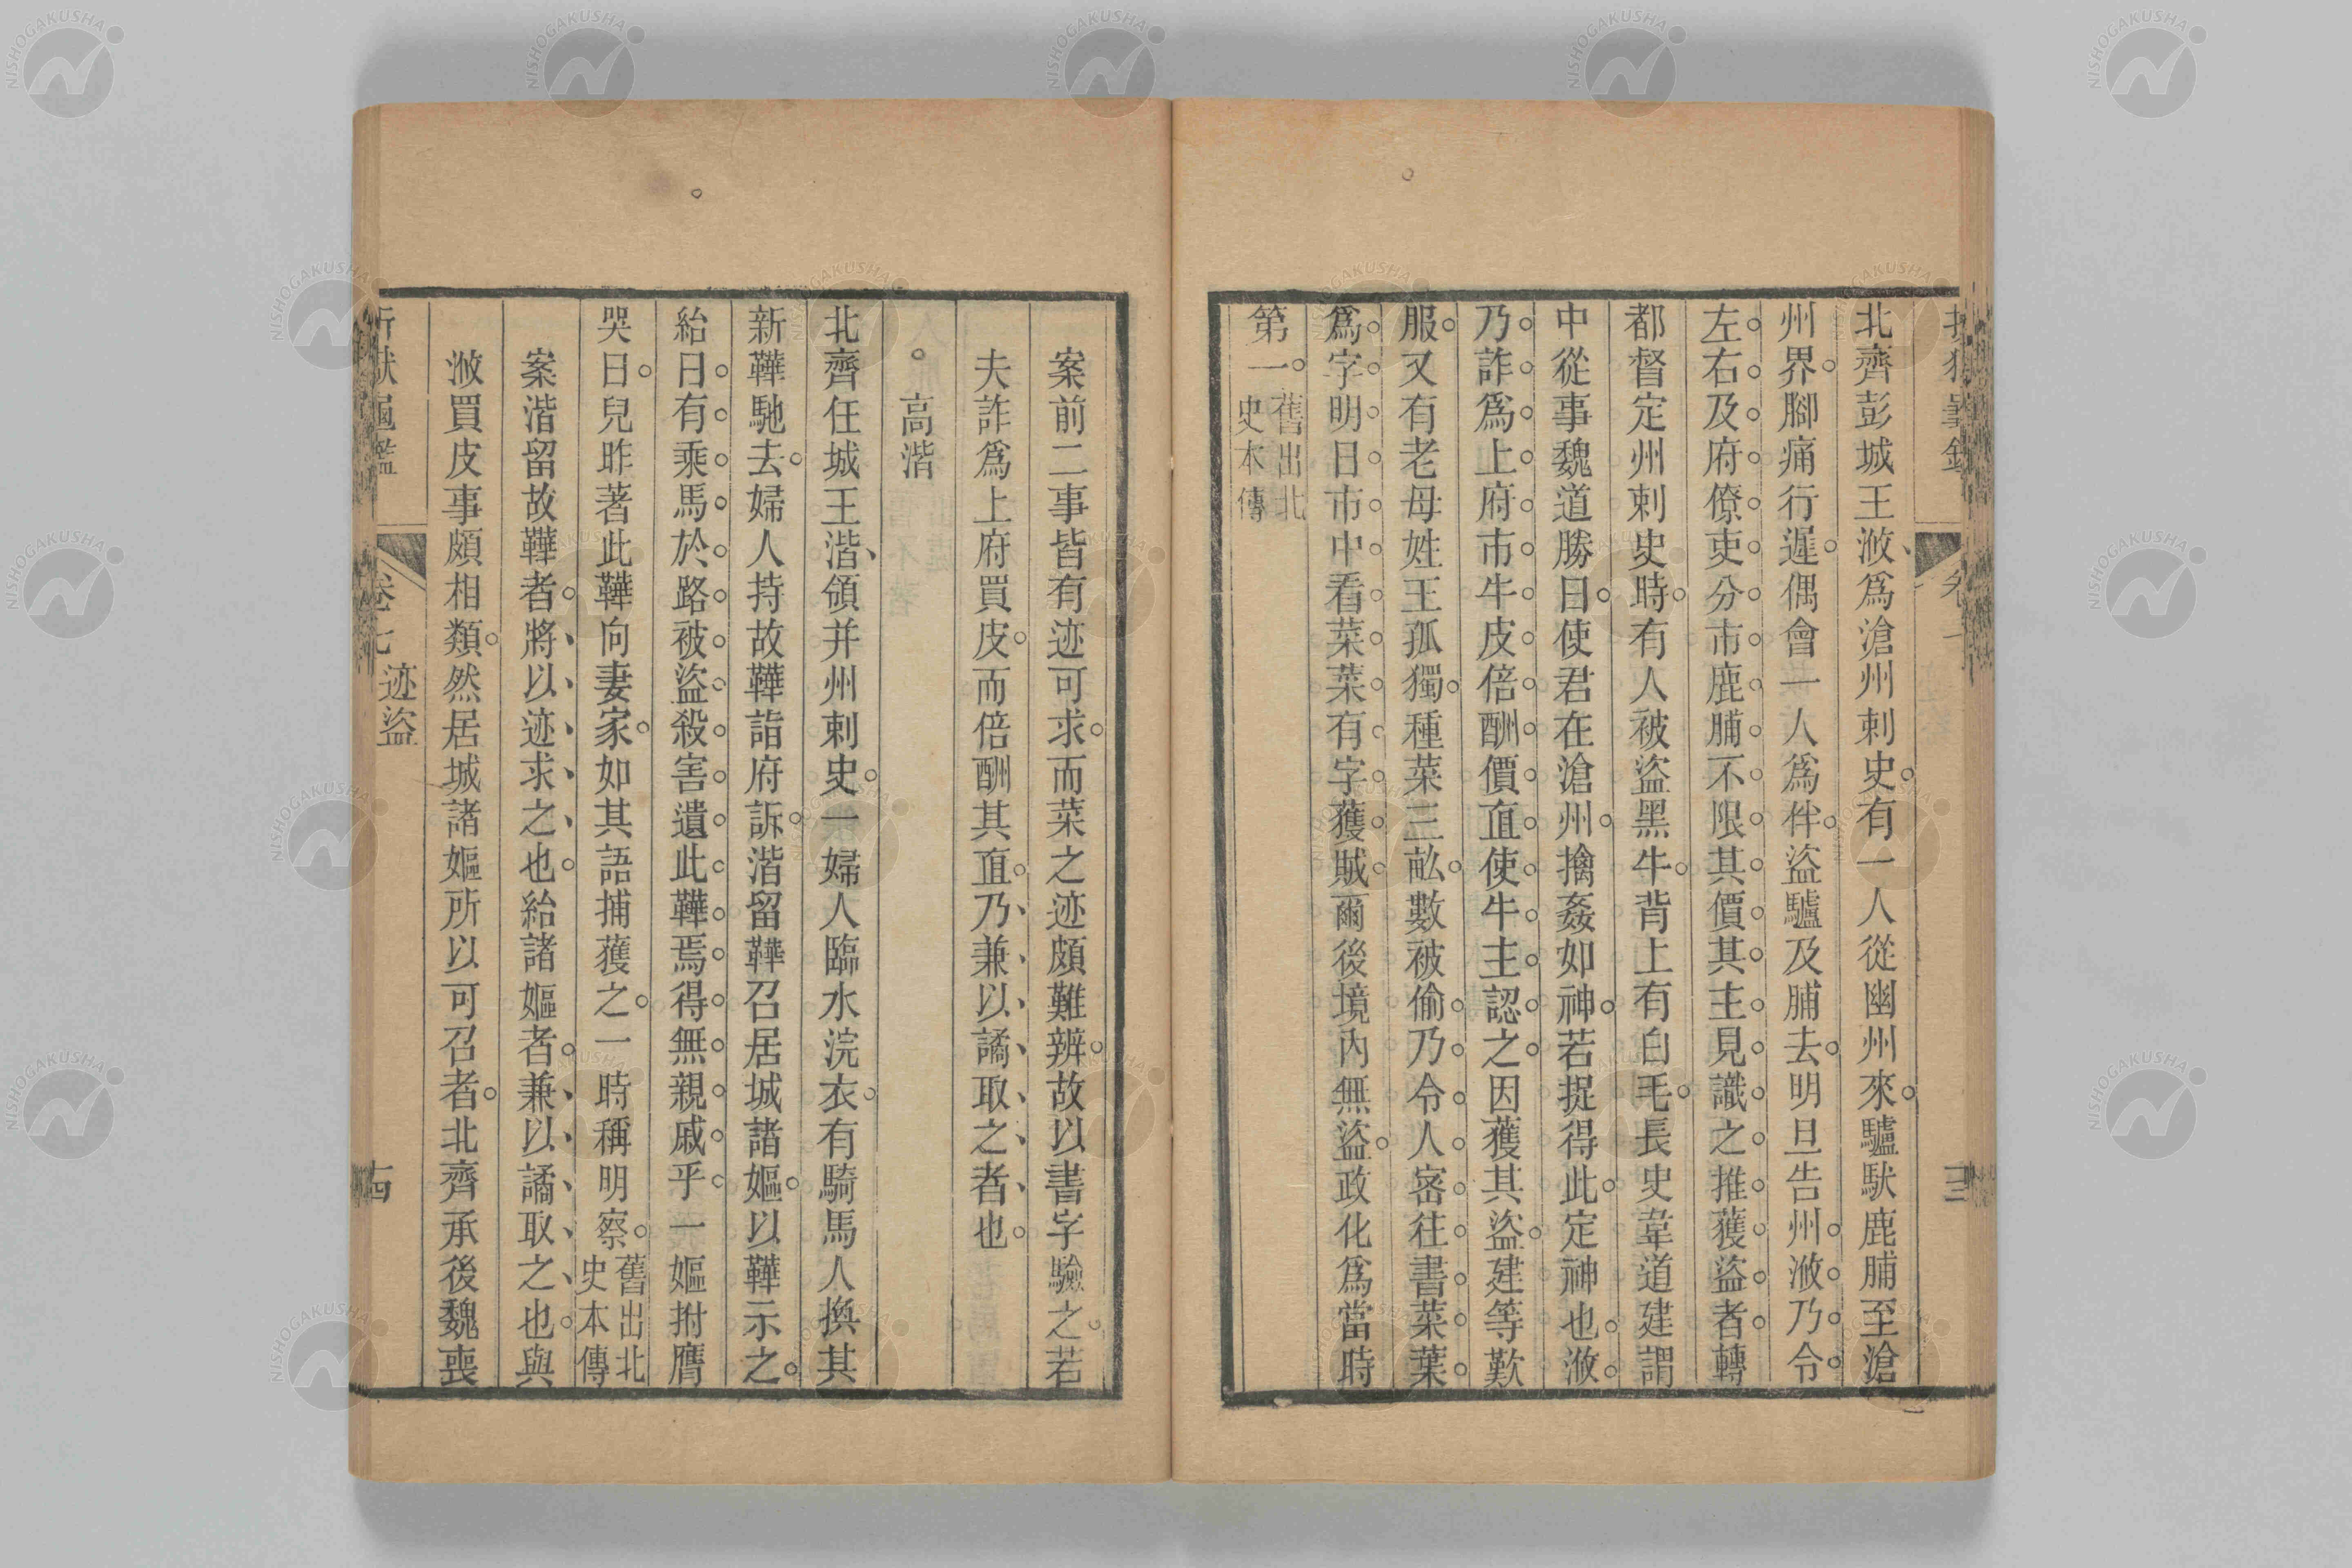 北齊彭城王浟為滄州刺史有一人從幽州來驢馱鹿脯至滄
州界腳痛行遲偶會一人爲伴盜驢及脯去明旦告州浟乃令
左右及府僚吏分市鹿脯不限其價其主見識之推獲盜者轉
都督定州刺史時有人被盜黑牛背上有白毛長史韋道建謂
中從事魏道勝曰使君在滄州擒姦如神若捉得此定神也浟
乃詐爲上府市牛皮倍酬價直使牛主認之因獲其盜建等歎
服又有老母姓王孤獨種菜三畝數被偷乃令人密往書菜葉
爲字明日市中看菜葉有字獲賊爾後境內無盜政化爲當時
第一舊出北
史本傳
案前二事皆有迹可求而菜之迹頗難辨故以書字驗之若
夫詐爲上府買皮而倍酬其直乃兼以譎取之者也
高湝
北齊任城王湝領并州刺史一婦人臨水浣衣有騎馬人換其
新鞾馳去婦人持故鞾詣府訴湝留鞾召居城諸嫗以鞾示之
紿曰有乘馬於路被盜殺害遺此鞾焉得無親戚乎一嫗拊膺
哭曰兒昨著此鞾向妻家如其語捕獲之一時稱明察舊出北
史本傳
案湝留故鞾者將以迹求之也紿諸嫗者兼以譎取之也與
浟買皮事頗相類然居城諸嫗所以可召者北齊承後魏喪
卷七
迹盜
十四